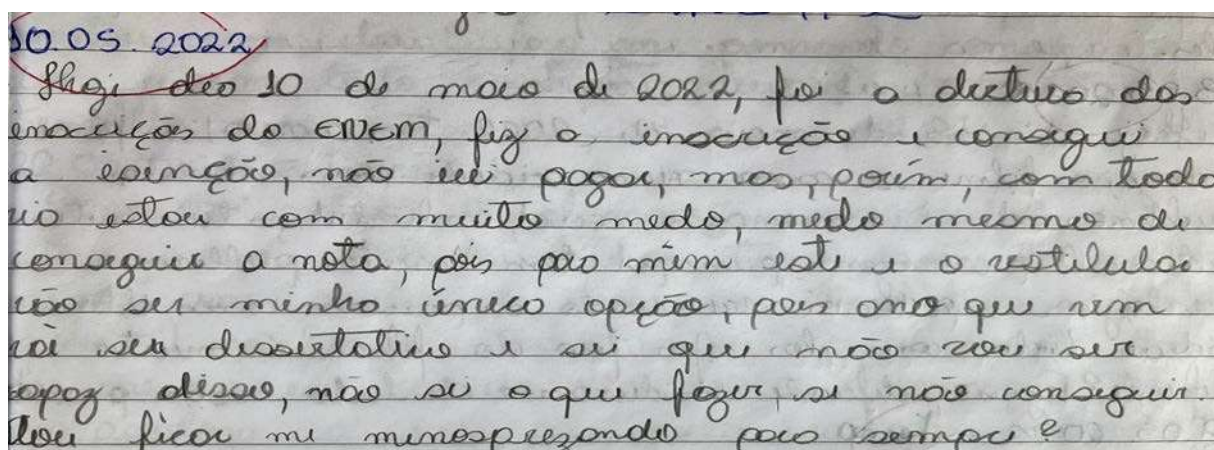 10.05.2022
Hoje dia 10 de maio de 2022, foi a abertura das
inscrições do ENEM, fiz a inscrição e consegui
a isenção, não irei pagar, mas, porém, com toda
via estou com muito medo, medo mesmo de
conseguir a nota, pois para mim este e o vestibular
vão ser minha única opção, pois ano que vem
vai ser dissertativo e sei que não vou ser
capaz disso, não sei o que fazer, se não conseguir.
Vou ficar me menosprezando para sempre e